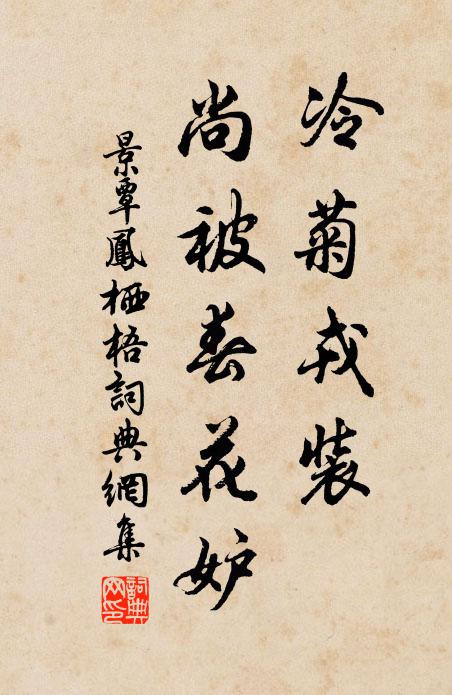 冷菊戎裝
尚被春花妒
景覃鳳栖梧詞典網集
詞典网印